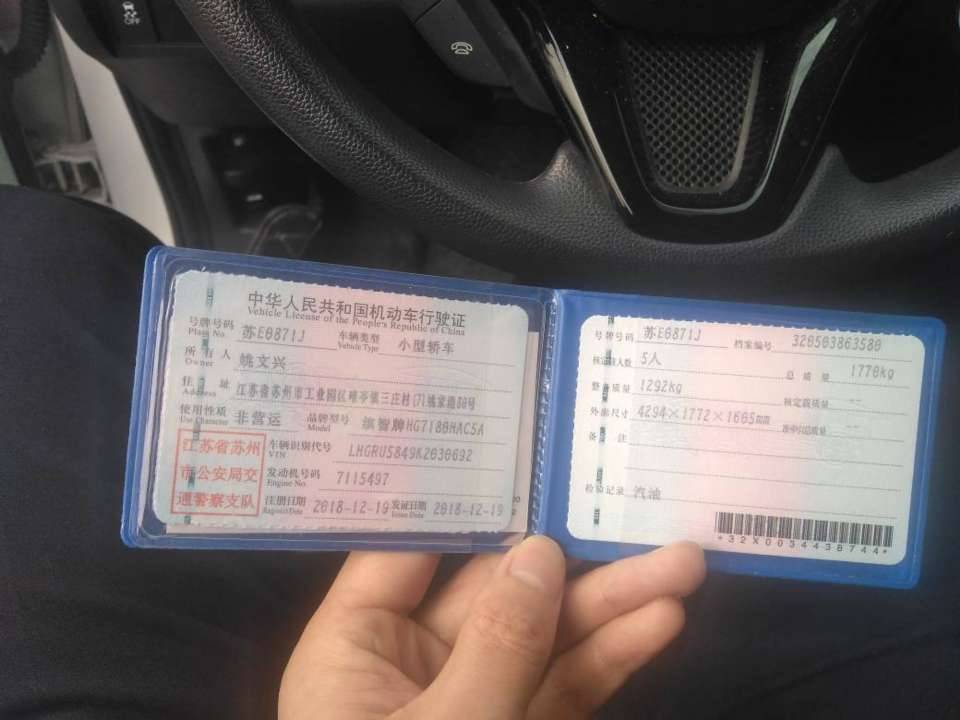 中华人民共和国机动车行驶证
Vehicle License of the People's Republic of China
号牌号码 苏E0871J 车辆类型 小型轿车
Plate No. Vehicle Type
所有人 姚文兴
Owner
住址 江苏省苏州市工业园区
Address
使用性质 非营运 品牌型号 缤智牌HG7180HAC5A
Use Character Model
江苏省苏州
市公安局交
通警察支队
车辆识别代号 LHGRU5849K2030692
VIN
发动机号码 7115497
Engine No.
注册日期 2018-12-19 发证日期 2018-12-19
Register Date Issue Date
号牌号码 苏E0871J 档案编号 320503863580
核定载人数 5人 总质量 1770kg
整备质量 1292kg 核定载质量 --
外廓尺寸 4294×1772×1605mm --
备注
检验记录 汽油
*32X0034438744*